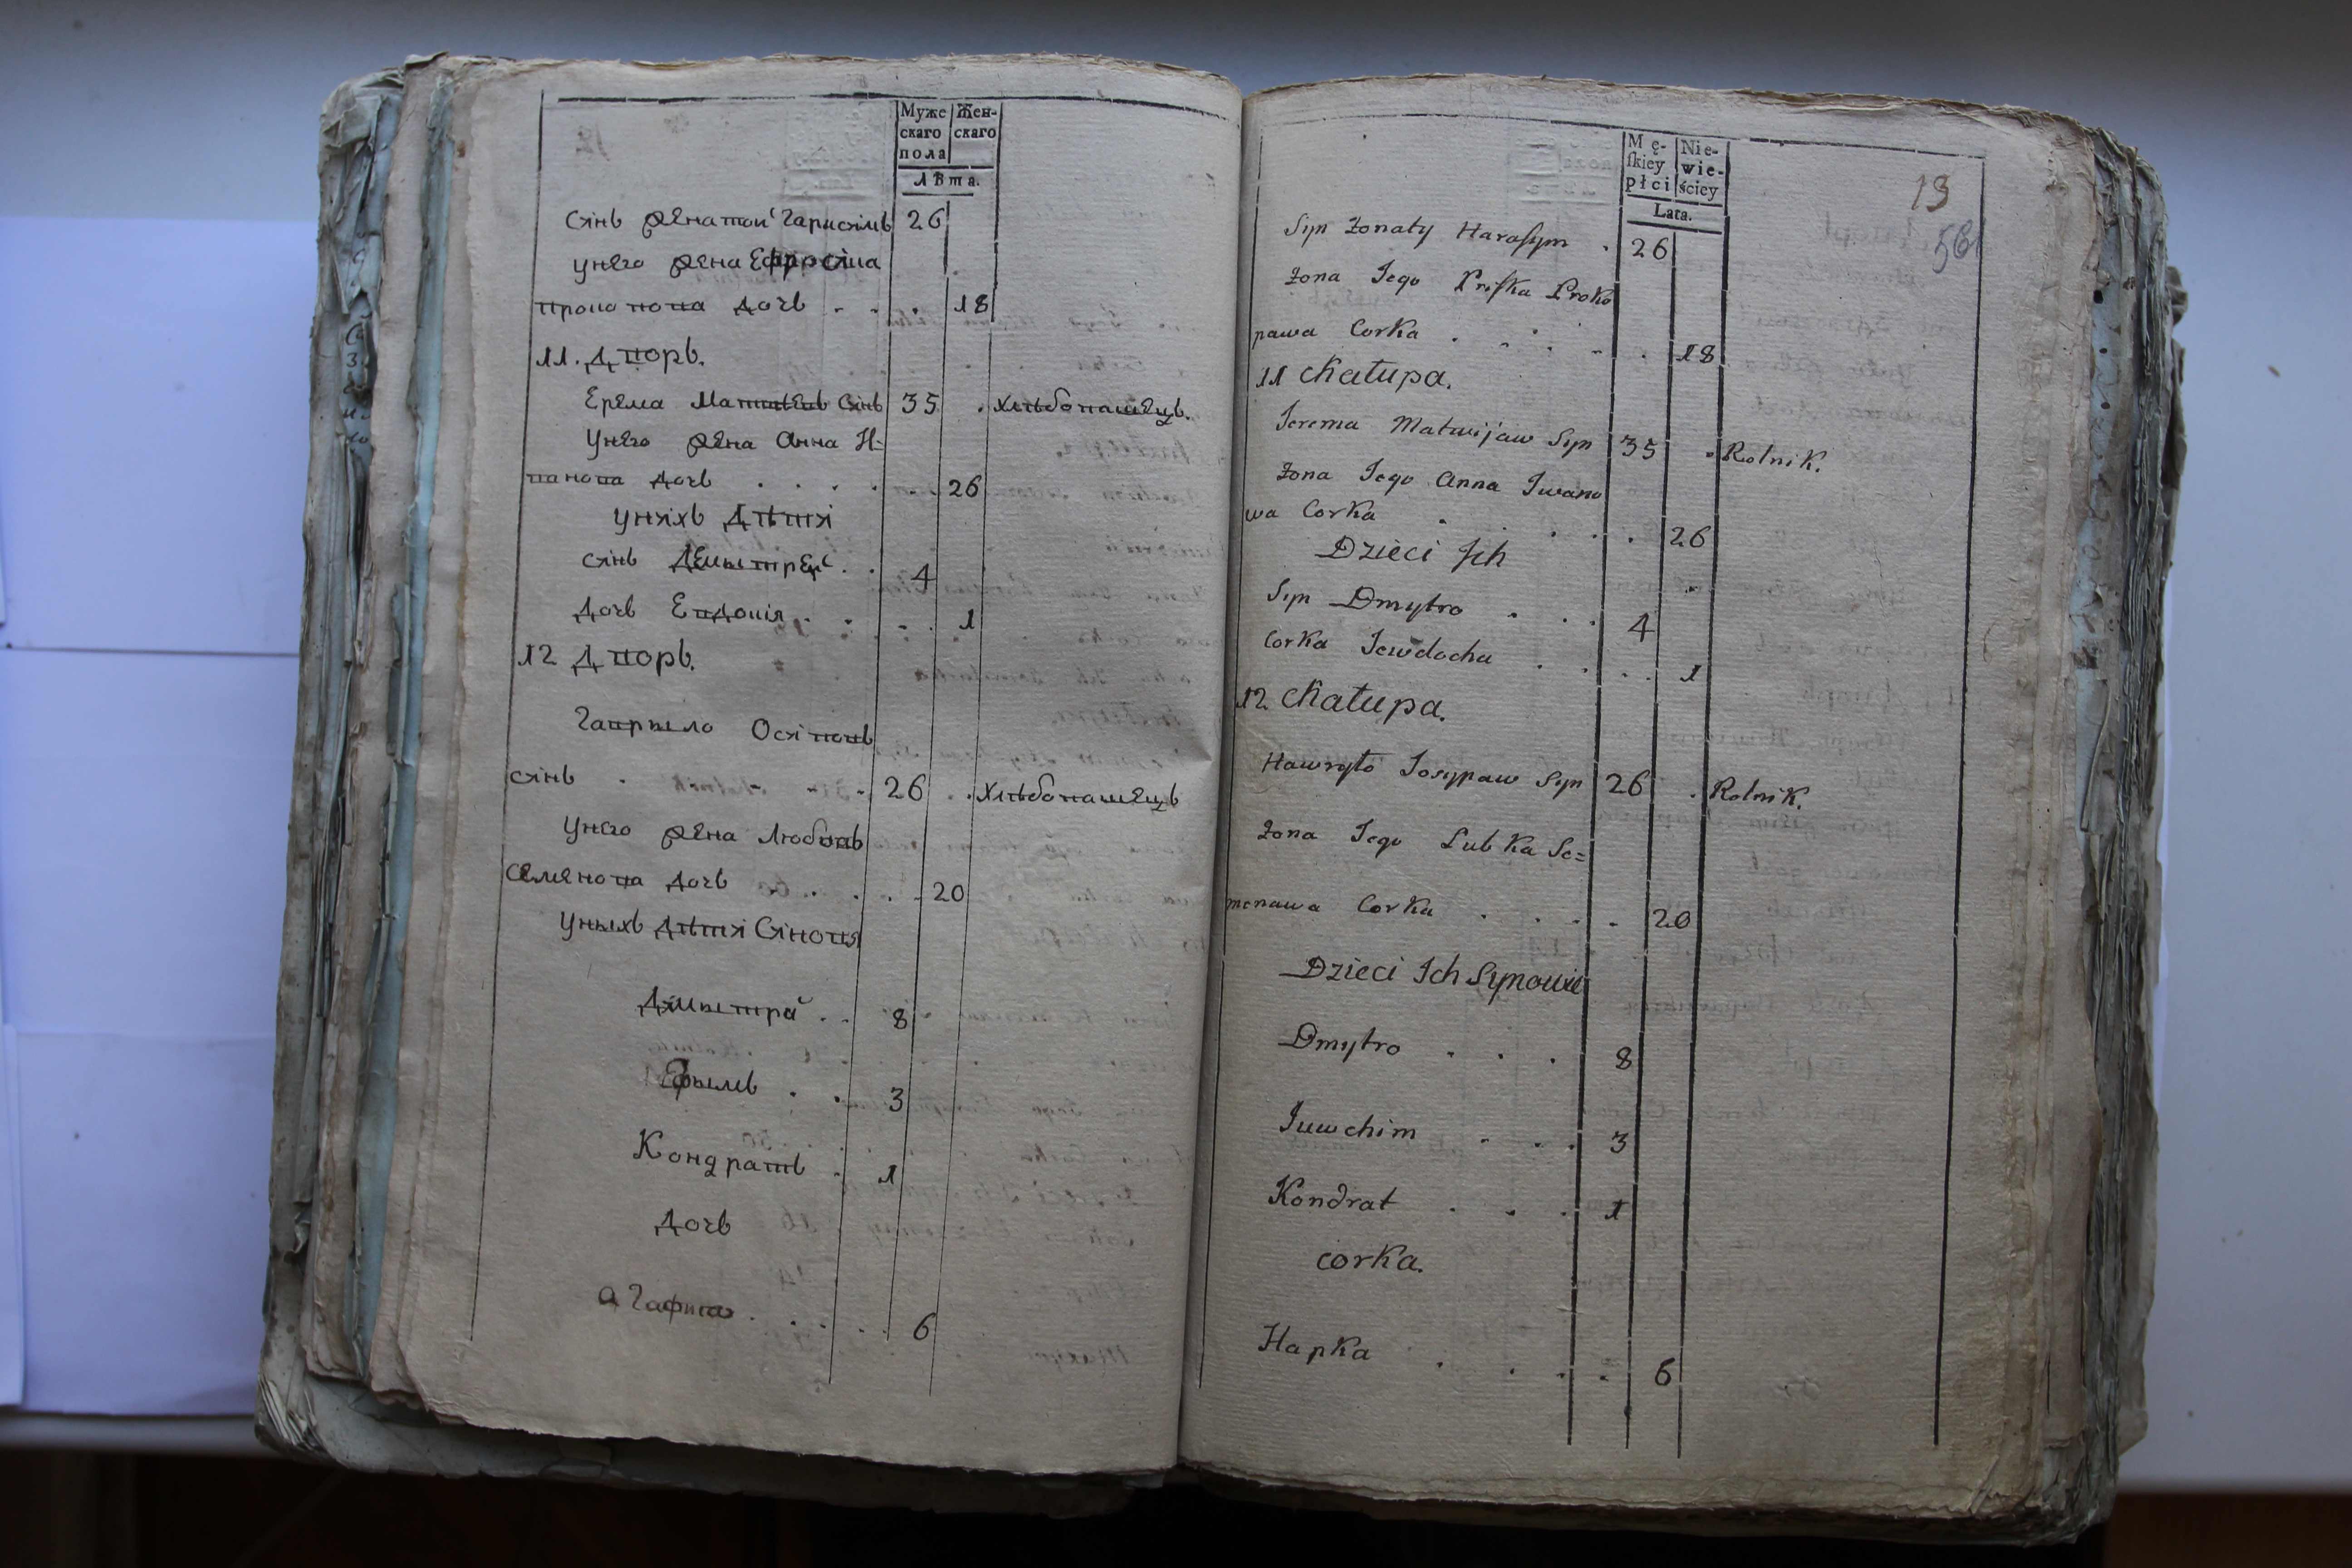 Муже Жен-
скаго скаго
пола
Лѣта.
сянъ женатои Гарисимъ 26
унего жена Ефросіма
прокопова дочь . . . 18
11. Дворъ.
Ерема Матвѣевъ Сянъ 35 . хлѣбопашецъ.
Унего жена Анна И=
ванова дочь . . . . . . 26
уняхъ Дѣтя
сянъ Деметреи . . 4
дочь Евдокія . . . . 1
12 Дворъ.
Гаврыло Осяповъ
сянъ . . . . 26 . . хлѣбопашецъ
Унего жена Любовъ
Семенова дочь . . . . . 20
Уныхъ дѣтя Сяновя
Дмытра . . 8
Ефымъ . . 3
Кондратъ . 1
дочь
агафия . . . . . 6
Mę- Nie-
skiey wie-
płci ściey
Lata.
13
561
Syn żonaty Harasym . 26
żona Jego Priska Proko
pawa Corka . . . . . 18
11 Chałupa.
Jerema Matwijaw Syn 35 . Rolnik.
żona Jego Anna Iwano
wa Corka . . . . 26
Dzieci Ich
Syn Dmytro . . . 4
Corka Jewdocha . . . . 1
12 Chałupa.
Hawryło Josypaw Syn 26 . Rolnik.
żona Jego Lubka Se=
menawa Corka . . . . 20
Dzieci Ich Synowie
Dmytro . . . 8
Juwchim . . . 3
Kondrat . . . 1
corka.
Hapka . . . . 6